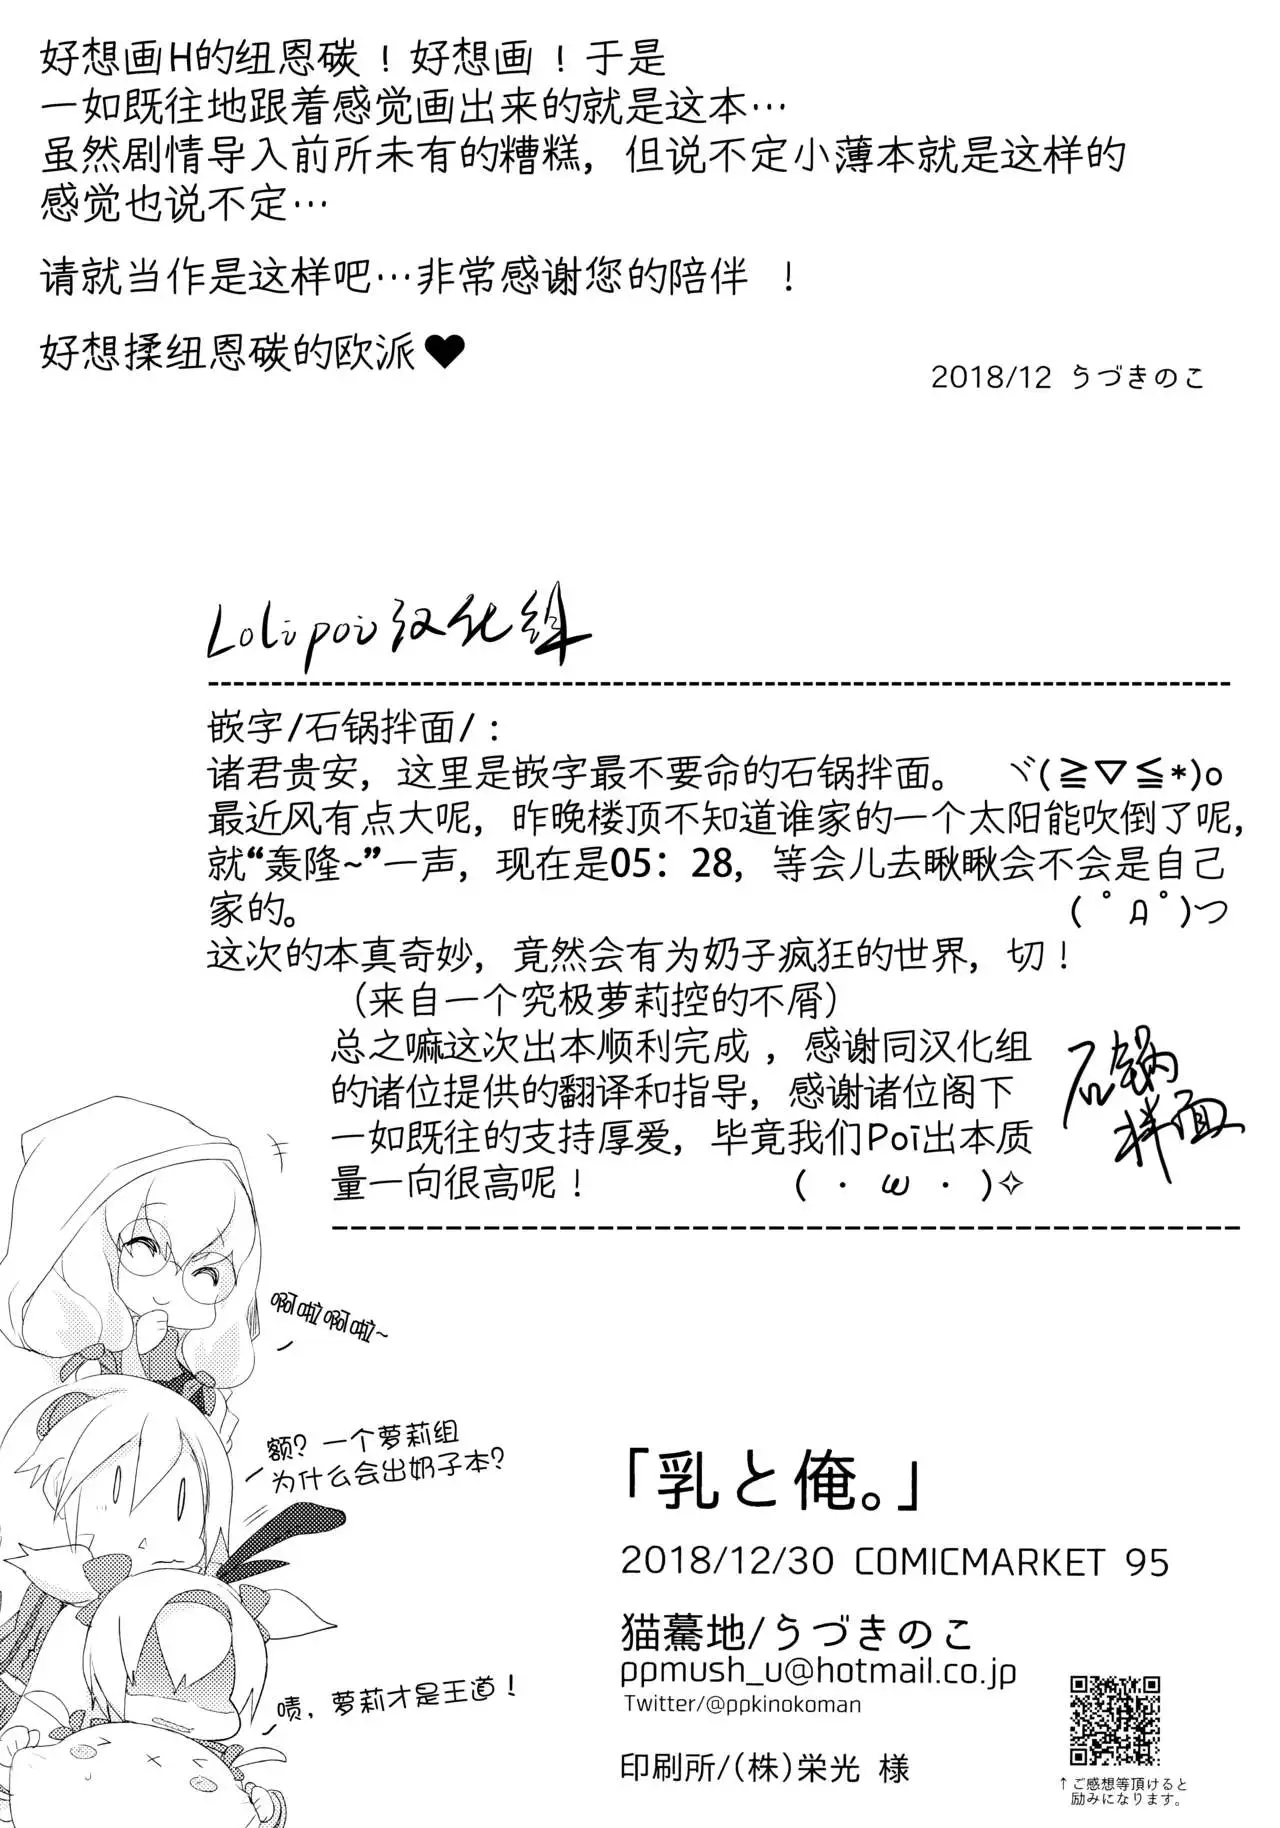 好想画H的纽恩碳！好想画！于是
一如既往地跟着感觉画出来的就是这本…
虽然剧情导入前所未有的糟糕，但说不定小薄本就是这样的
感觉也说不定…
请就当作是这样吧…非常感谢您的陪伴 ！
好想揉纽恩碳的欧派♥
2018/12 うづきのこ
Lolipoi汉化组
嵌字/石锅拌面/：
诸君贵安，这里是嵌字最不要命的石锅拌面。 ヾ(≧▽≦*)o
最近风有点大呢，昨晚楼顶不知道谁家的一个太阳能吹倒了呢，
就“轰隆~”一声，现在是05：28，等会儿去瞅瞅会不会是自己
家的。 ( ﾟДﾟ)つ
这次的本真奇妙，竟然会有为奶子疯狂的世界，切！
（来自一个究极萝莉控的不屑）
总之嘛这次出本顺利完成 ，感谢同汉化组
的诸位提供的翻译和指导，感谢诸位阁下
一如既往的支持厚爱，毕竟我们Poi出本质
量一向很高呢！ ( ・ ω ・ )✧
石锅
拌面
啊啦啊啦~
额？一个萝莉组
为什么会出奶子本?
啧，萝莉才是王道！
「乳と俺。」
2018/12/30 COMICMARKET 95
猫驀地/うづきのこ
ppmush_u@hotmail.co.jp
Twitter/@ppkinokoman
印刷所/(株)栄光 様
↑ご感想等頂けると
励みになります。